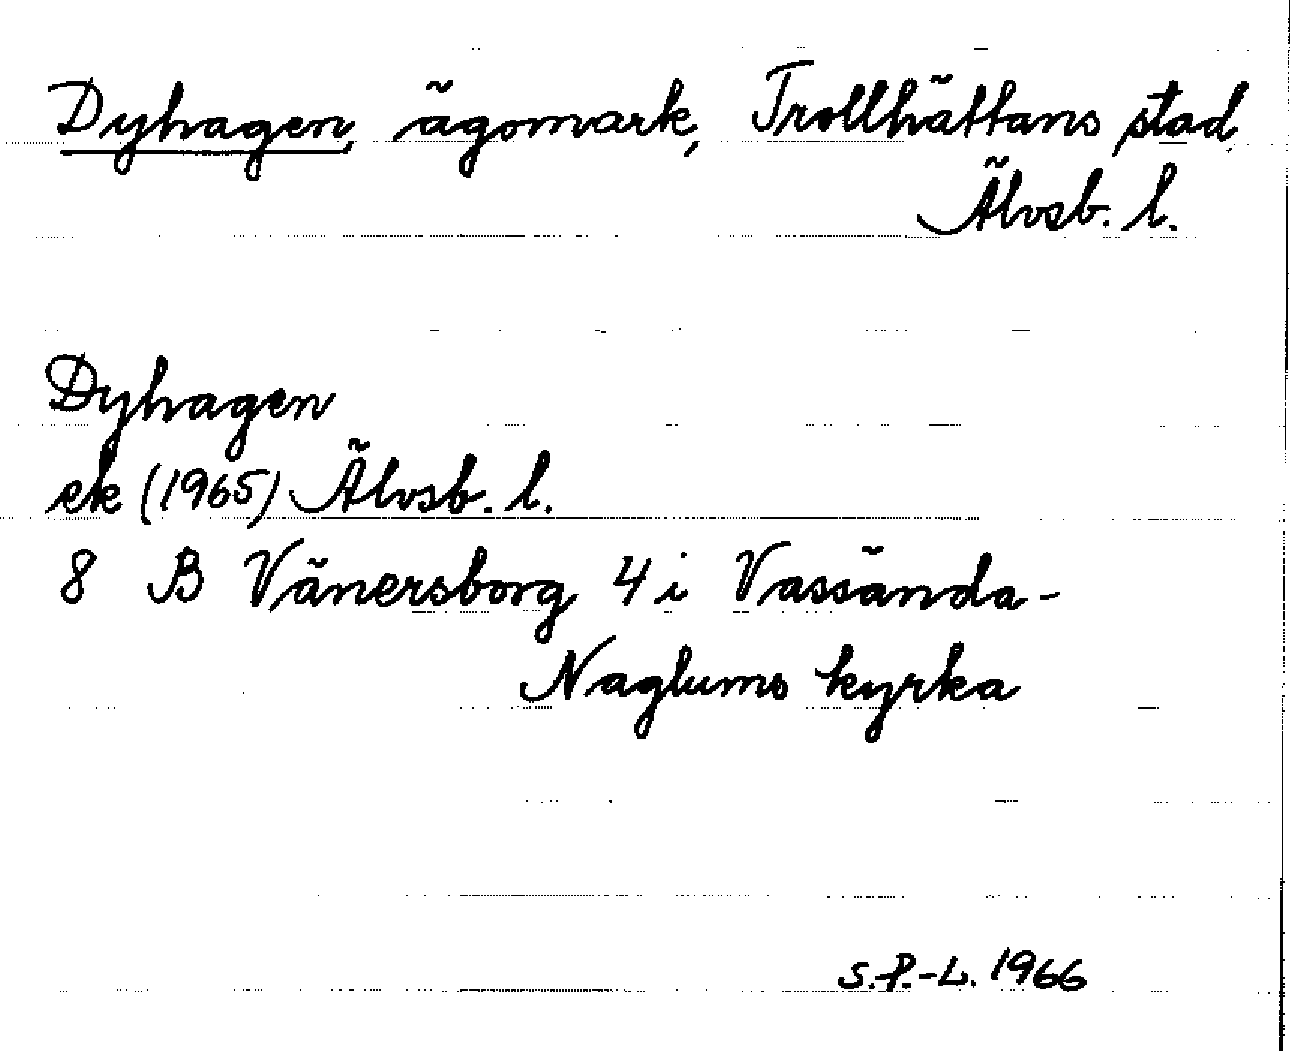 Dyhagen, ägomark, Trollhättans stad
Älvsb. l.
Dyhagen
ek (1965) Älvsb. l.
8 B Vänersborg 4 i Vassända-
Naglums kyrka
S.P.-L. 1966